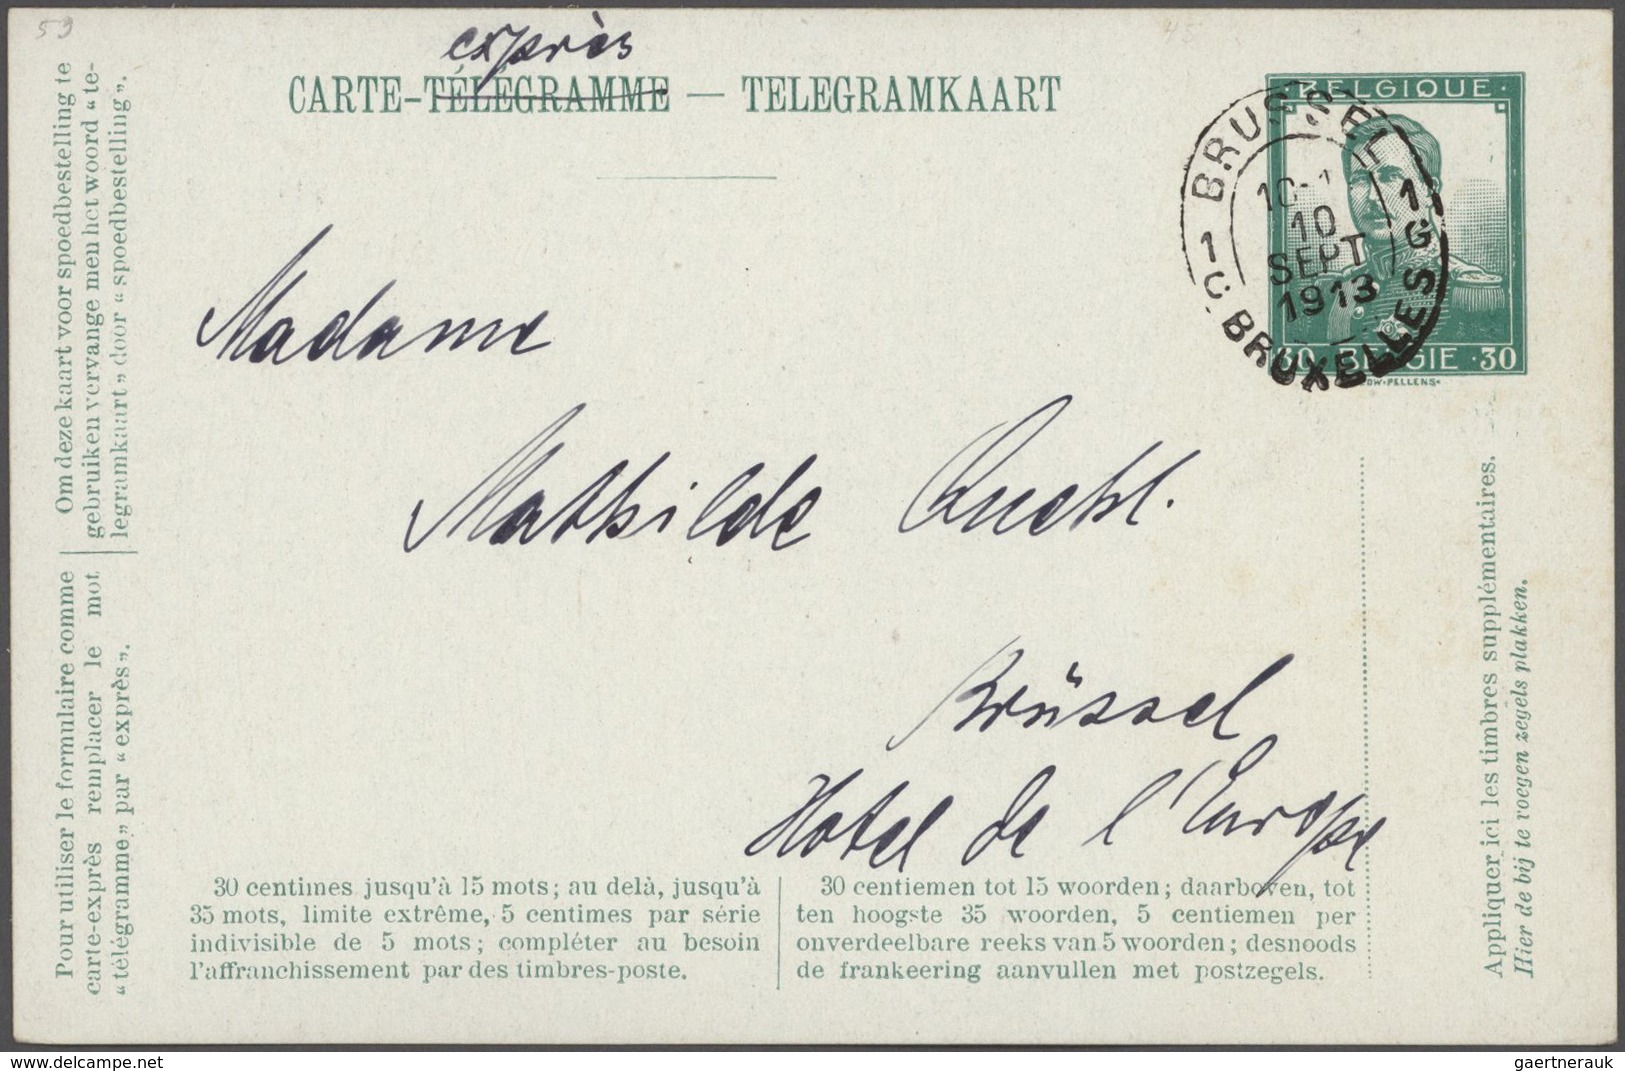 59
exprès
CARTE-TÉLÉGRAMME — TELEGRAMKAART
BELGIQUE
BRUSSEL
1 1
10
SEPT
1913
C. G.
BRUXELLES
30 BELGIE 30
PELLENS
Om deze kaart voor spoedbestelling te
gebruiken vervange men het woord “te-
legramkaart„ door “spoedbestelling„.
Pour utiliser le formulaire comme
carte-exprès remplacer le mot
“télégramme„ par “exprès„.
Madame
Mathilde
Brüssel
Hotel de l'Europe
30 centimes jusqu'à 15 mots; au delà, jusqu'à
35 mots, limite extrême, 5 centimes par série
indivisible de 5 mots; compléter au besoin
l'affranchissement par des timbres-poste.
30 centiemen tot 15 woorden; daarboven, tot
ten hoogste 35 woorden, 5 centiemen per
onverdeelbare reeks van 5 woorden; desnoods
de frankeering aanvullen met postzegels.
Appliquer ici les timbres supplémentaires.
Hier de bij te voegen zegels plakken.
www.delcampe.net
gaertnerauk